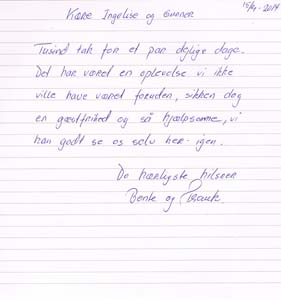 15/9-2014
Kære Ingelise og Gunner
Tusind tak for et par dejlige dage.
Det har været en oplevelse vi ikke
ville have været foruden, sikken dog
en gæstfrihed og så hjælpsomme, vi
kan godt se os selv her igen.
De hærligste hilsner
Bente og Frank.